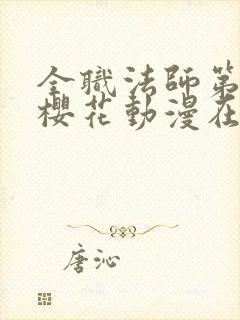 全職法師第
櫻花動漫在
唐沁